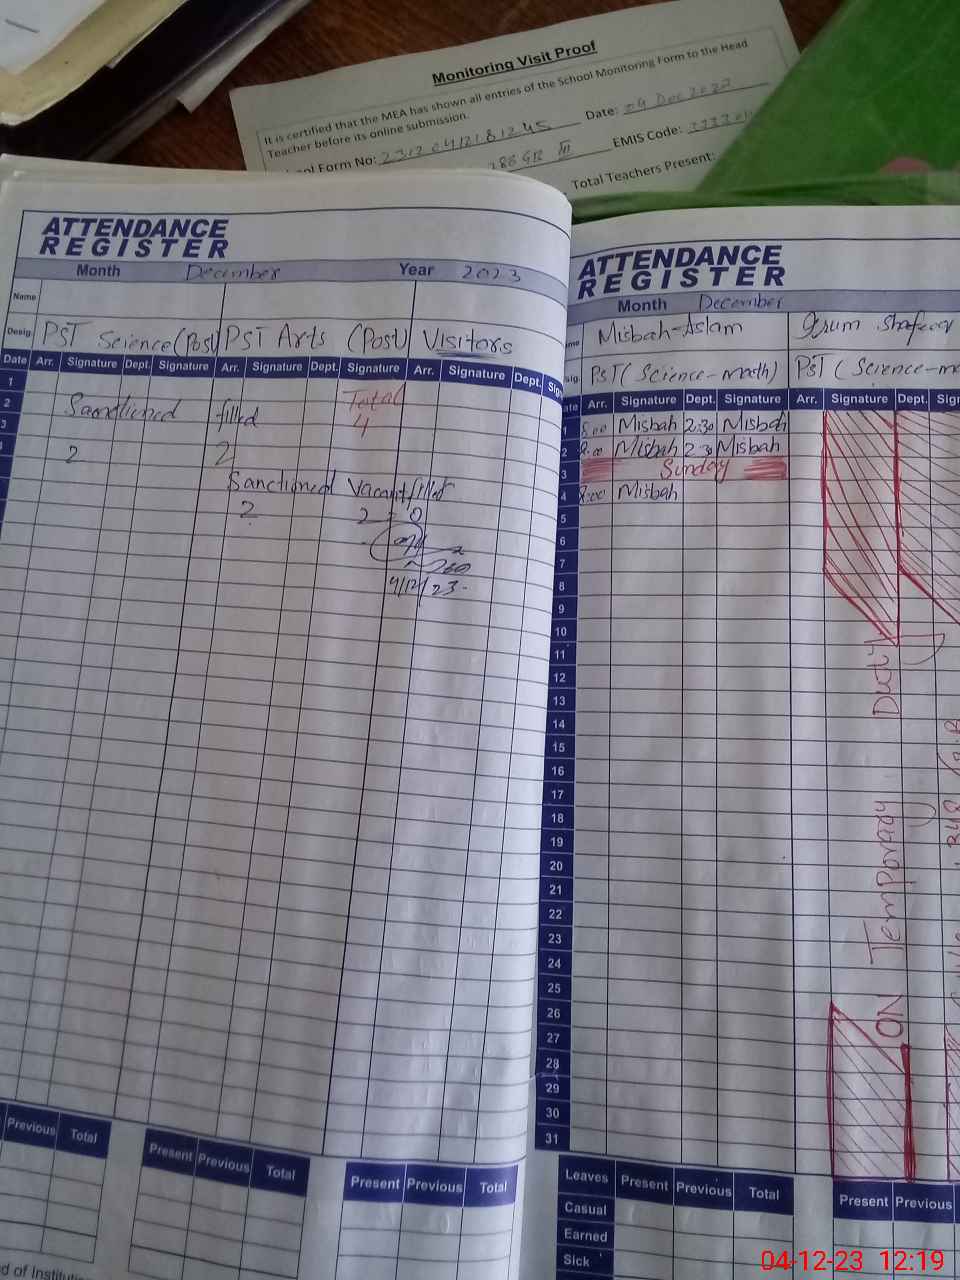 Monitoring Visit Proof
It is certified that the MEA has shown all entries of the School Monitoring Form to the Head
Teacher before its online submission.
Form No: 23120412181245 Date: 04 Dec 2023
EMIS Code:
Total Teachers Present:
ATTENDANCE
REGISTER
Month December Year 2023
Name
Desig. PST Science (Post) PST Arts (Post) Visitors
Date Arr. Signature Dept. Signature Arr. Signature Dept. Signature Arr. Signature Dept.
1
2 Sanctioned filled Total
3 4
2 2
Sanctioned Vacant filled
2 2 0
4/12/23
Previous Total
Present Previous Total
Present Previous Total
ATTENDANCE
REGISTER
Month December
Misbah-Aslam
PST (Science-math) PST (Science-
Arr. Signature Dept. Signature Arr. Signature Dept.
1 8:00 Misbah 2:30 Misbah
2 8:00 Misbah 2:30 Misbah
3 Sunday
4 8:00 Misbah
5
6
7
8
9
10
11
12
13
14
15
16
17
18
19
20
21
22
23
24
25
26
27
28
29
30
31
ON Temporary Duty
Leaves Present Previous Total
Casual
Earned
Sick
Present Previous
04-12-23 12:19